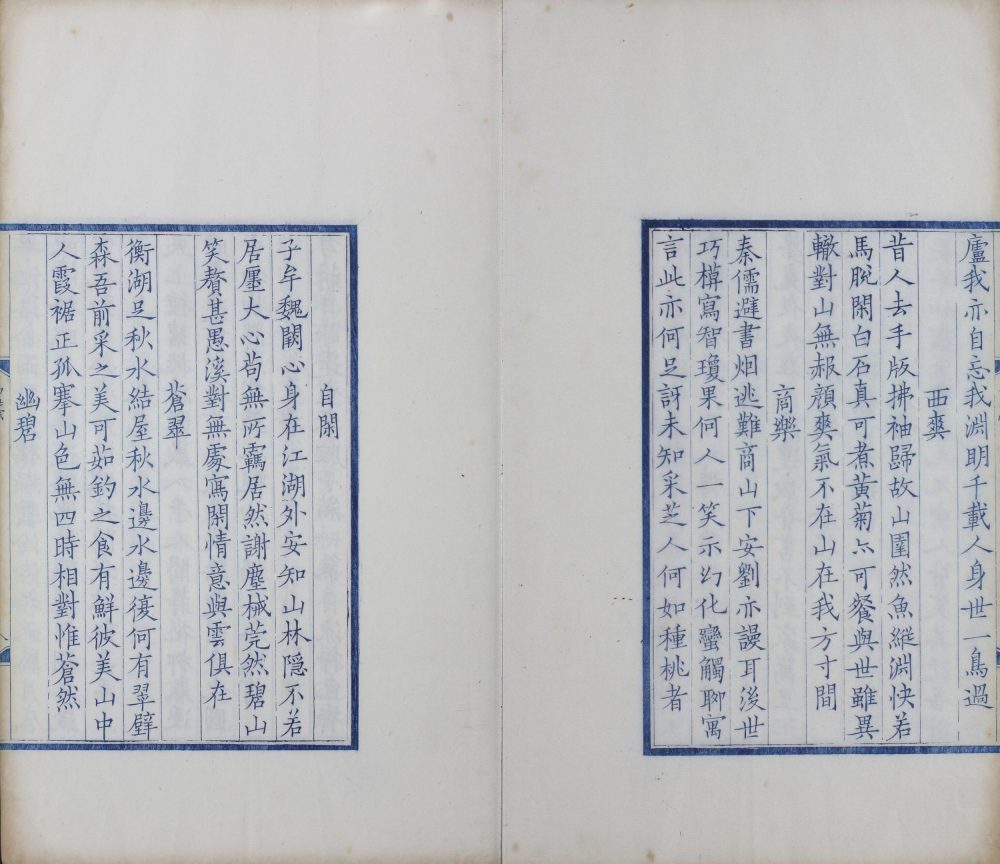 廬我亦自忘我淵明千載人身世一鳥過
西爽
昔人去手版拂袖歸故山圉然魚縱淵快若
馬脫閑白石真可煮黃菊亦可餐與世雖異
轍對山無赧顏爽氣不在山在我方寸間
商樂
秦儒避書烟逃難商山下安劉亦謾耳後世
巧模寫智瓊果何人一笑示幻化蠻觸聊寓
言此亦何足訝未知采芝人何如種桃者
自閑
子牟魏闕心身在江湖外安知山林隱不若
居廛大心苟無所羈居然謝塵械莞然碧山
笑贅甚愚溪對無處寫閑情意與雲俱在
蒼翠
衡湖足秋水結屋秋水邊水邊復何有翠壁
森吾前采之美可茹釣之食有鮮彼美山中
人霞裾正孤搴山色無四時相對惟蒼然
幽碧